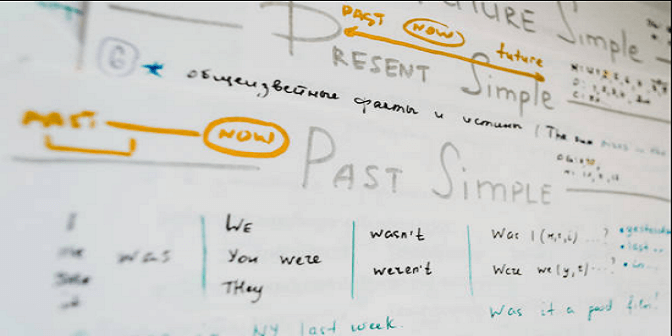 FUTURE Simple
PAST NOW future
PRESENT Simple
6 * общеизвейные факты и истины (The sun
PAST NOW
PAST SIMPLE
I
He was
She
it
WE
You were
THey
wasn't
weren't
Was I (H, S, i) ...?
Were we (y, t) ...?
• yesterday
• last ..
• in ...
Was it a good film?
NY last week.